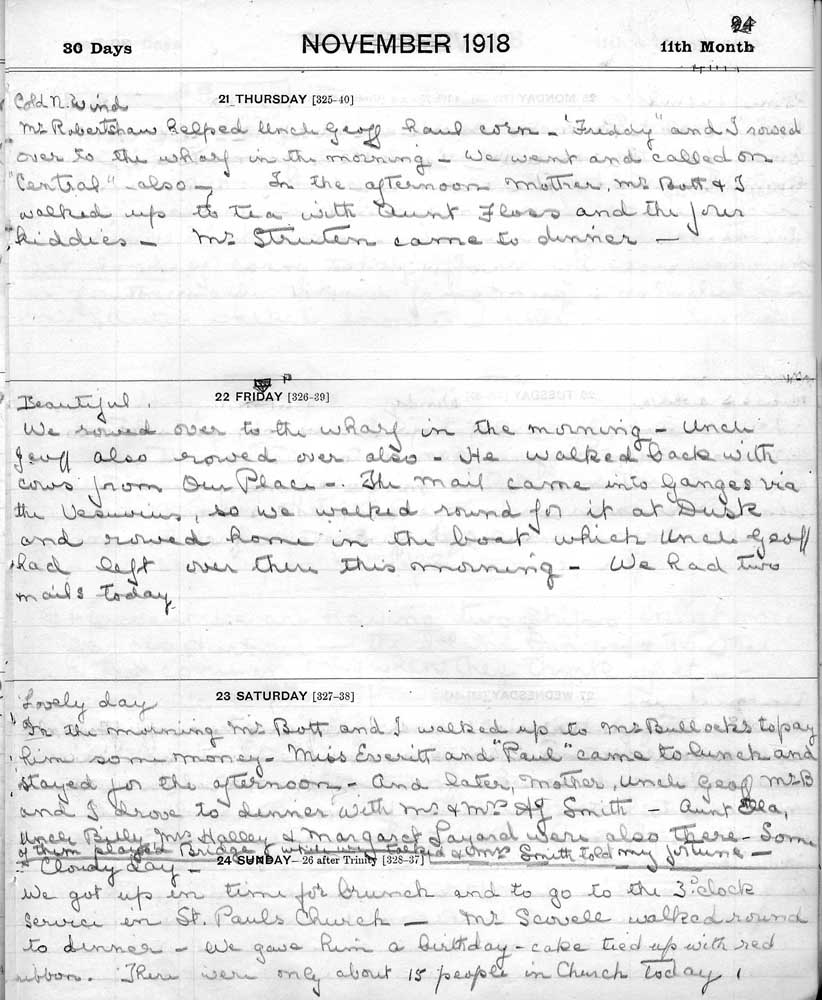 24
30 Days NOVEMBER 1918 11th Month
Cold N. Wind
21 THURSDAY [325-40]
Mr Robertshaw helped Uncle Geoff haul corn - "Freddy" and I rowed
over to the wharf in the morning - We went and called on
"Central" also - In the afternoon Mother, Mr Bott & I
walked up to tea with Aunt Floss and the four
kiddies - Mr Struten came to dinner -
Beautiful.
22 FRIDAY [326-39]
We rowed over to the wharf in the morning - Uncle
Geoff also rowed over also - He walked back with
cows from Our Place -. The mail came into Ganges via
the Vesuvius, so we walked round for it at Dusk
and rowed home in the boat which Uncle Geoff
had left over there this morning - We had two
mails today
Lovely day
23 SATURDAY [327-38]
In the morning Mr Bott and I walked up to Mr Bullocks to pay
him some money - Miss Everitt and "Paul" came to lunch and
stayed for the afternoon - And later, Mother, Uncle Geoff Mr B
and I drove to dinner with Mr & Mrs AJ Smith - Aunt Ella,
Uncle Billy, Mrs Halley & Margaret Layard were also there - Some
of them played Bridge & while we talked & Mrs Smith told my fortune -
Cloudy day -
24 SUNDAY - 26 after Trinity [328-37]
We got up in time for brunch and to go to the 3 o'clock
service in St. Pauls Church - Mr Scovell walked round
to dinner - We gave him a birthday-cake tied up with red
ribbon. There were only about 15 people in Church today.